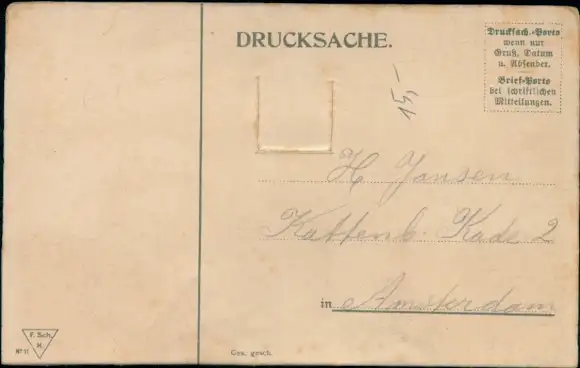 DRUCKSACHE.
Drucksach.-Porto
wenn nur
Gruß, Datum
u. Absender.
Brief-Porto
bei schriftlichen
Mitteilungen.
15,-
H Jansen
Kattenb. Kade 2
in Amsterdam
F. Sch.
H.
Nº 11
Ges. gesch.